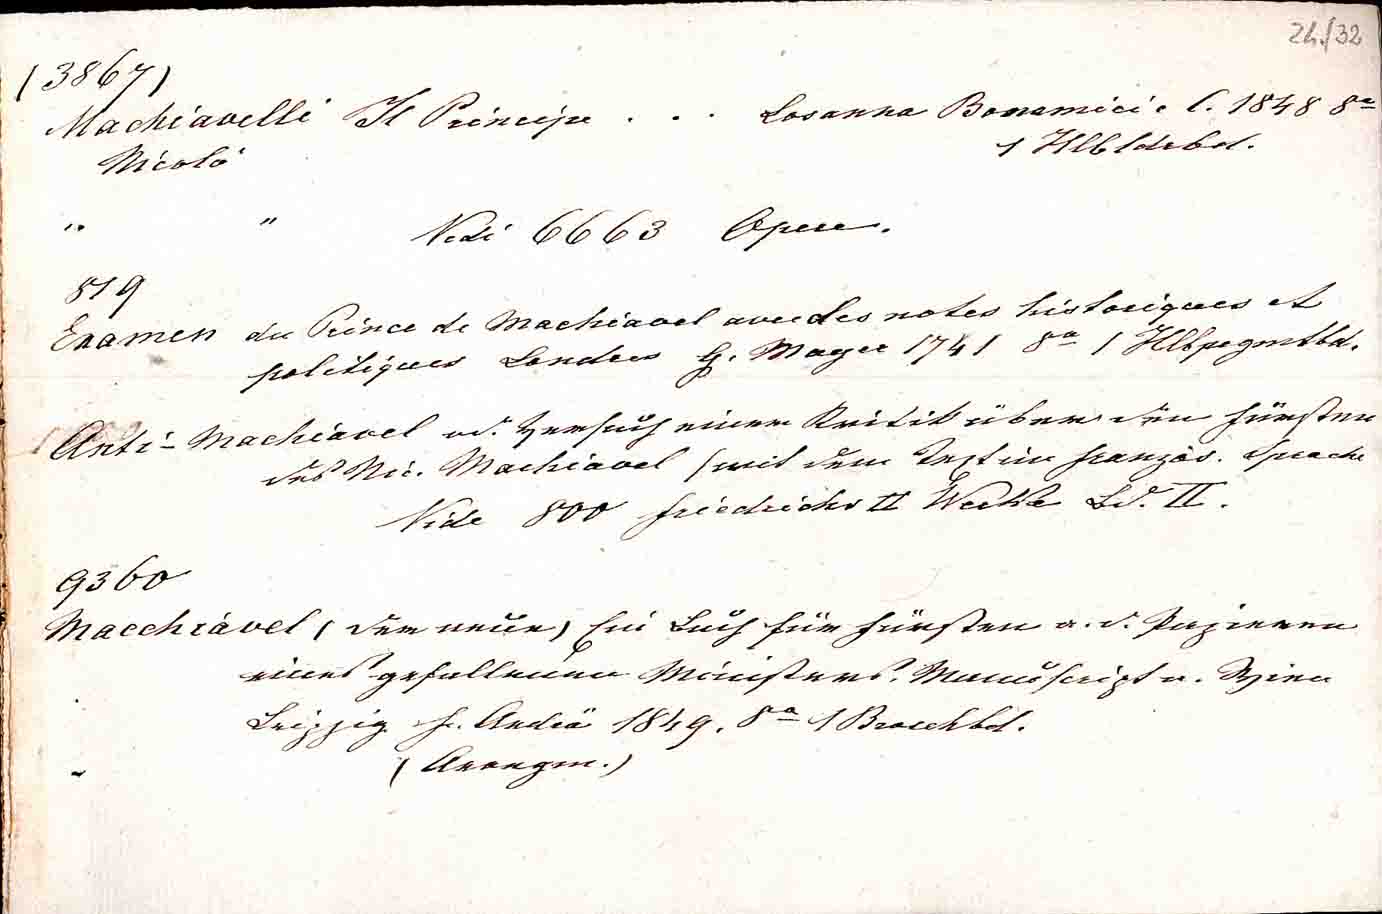 24/32
(3867)
Machiavelli Il Principe . . . Losanna Bonamici e C. 1848 8°
Nicolò 1 Hlbldrbd.
" " Vedi 6663 Opere.
819
Examen du Prince de Machiavel avec des notes historiques et
politiques Londres G. Meyer 1741 8° 1 Hlbpgmtbd.
Anti-Machiavel od. Versuch einer Kritik über den Fürsten
des Nic. Machiavel (mit dem Text in französ. Sprache
Vide 800 Friedrichs II Werke Bd. II.
9360
Macchiavel (der neue) Ein Buch für Fürsten a. d. Papieren
eines gefallenen Ministers. Manuscript a. Wien
Leipzig F. Andrä 1849. 8° 1 Broschbd.
(Anongm.)